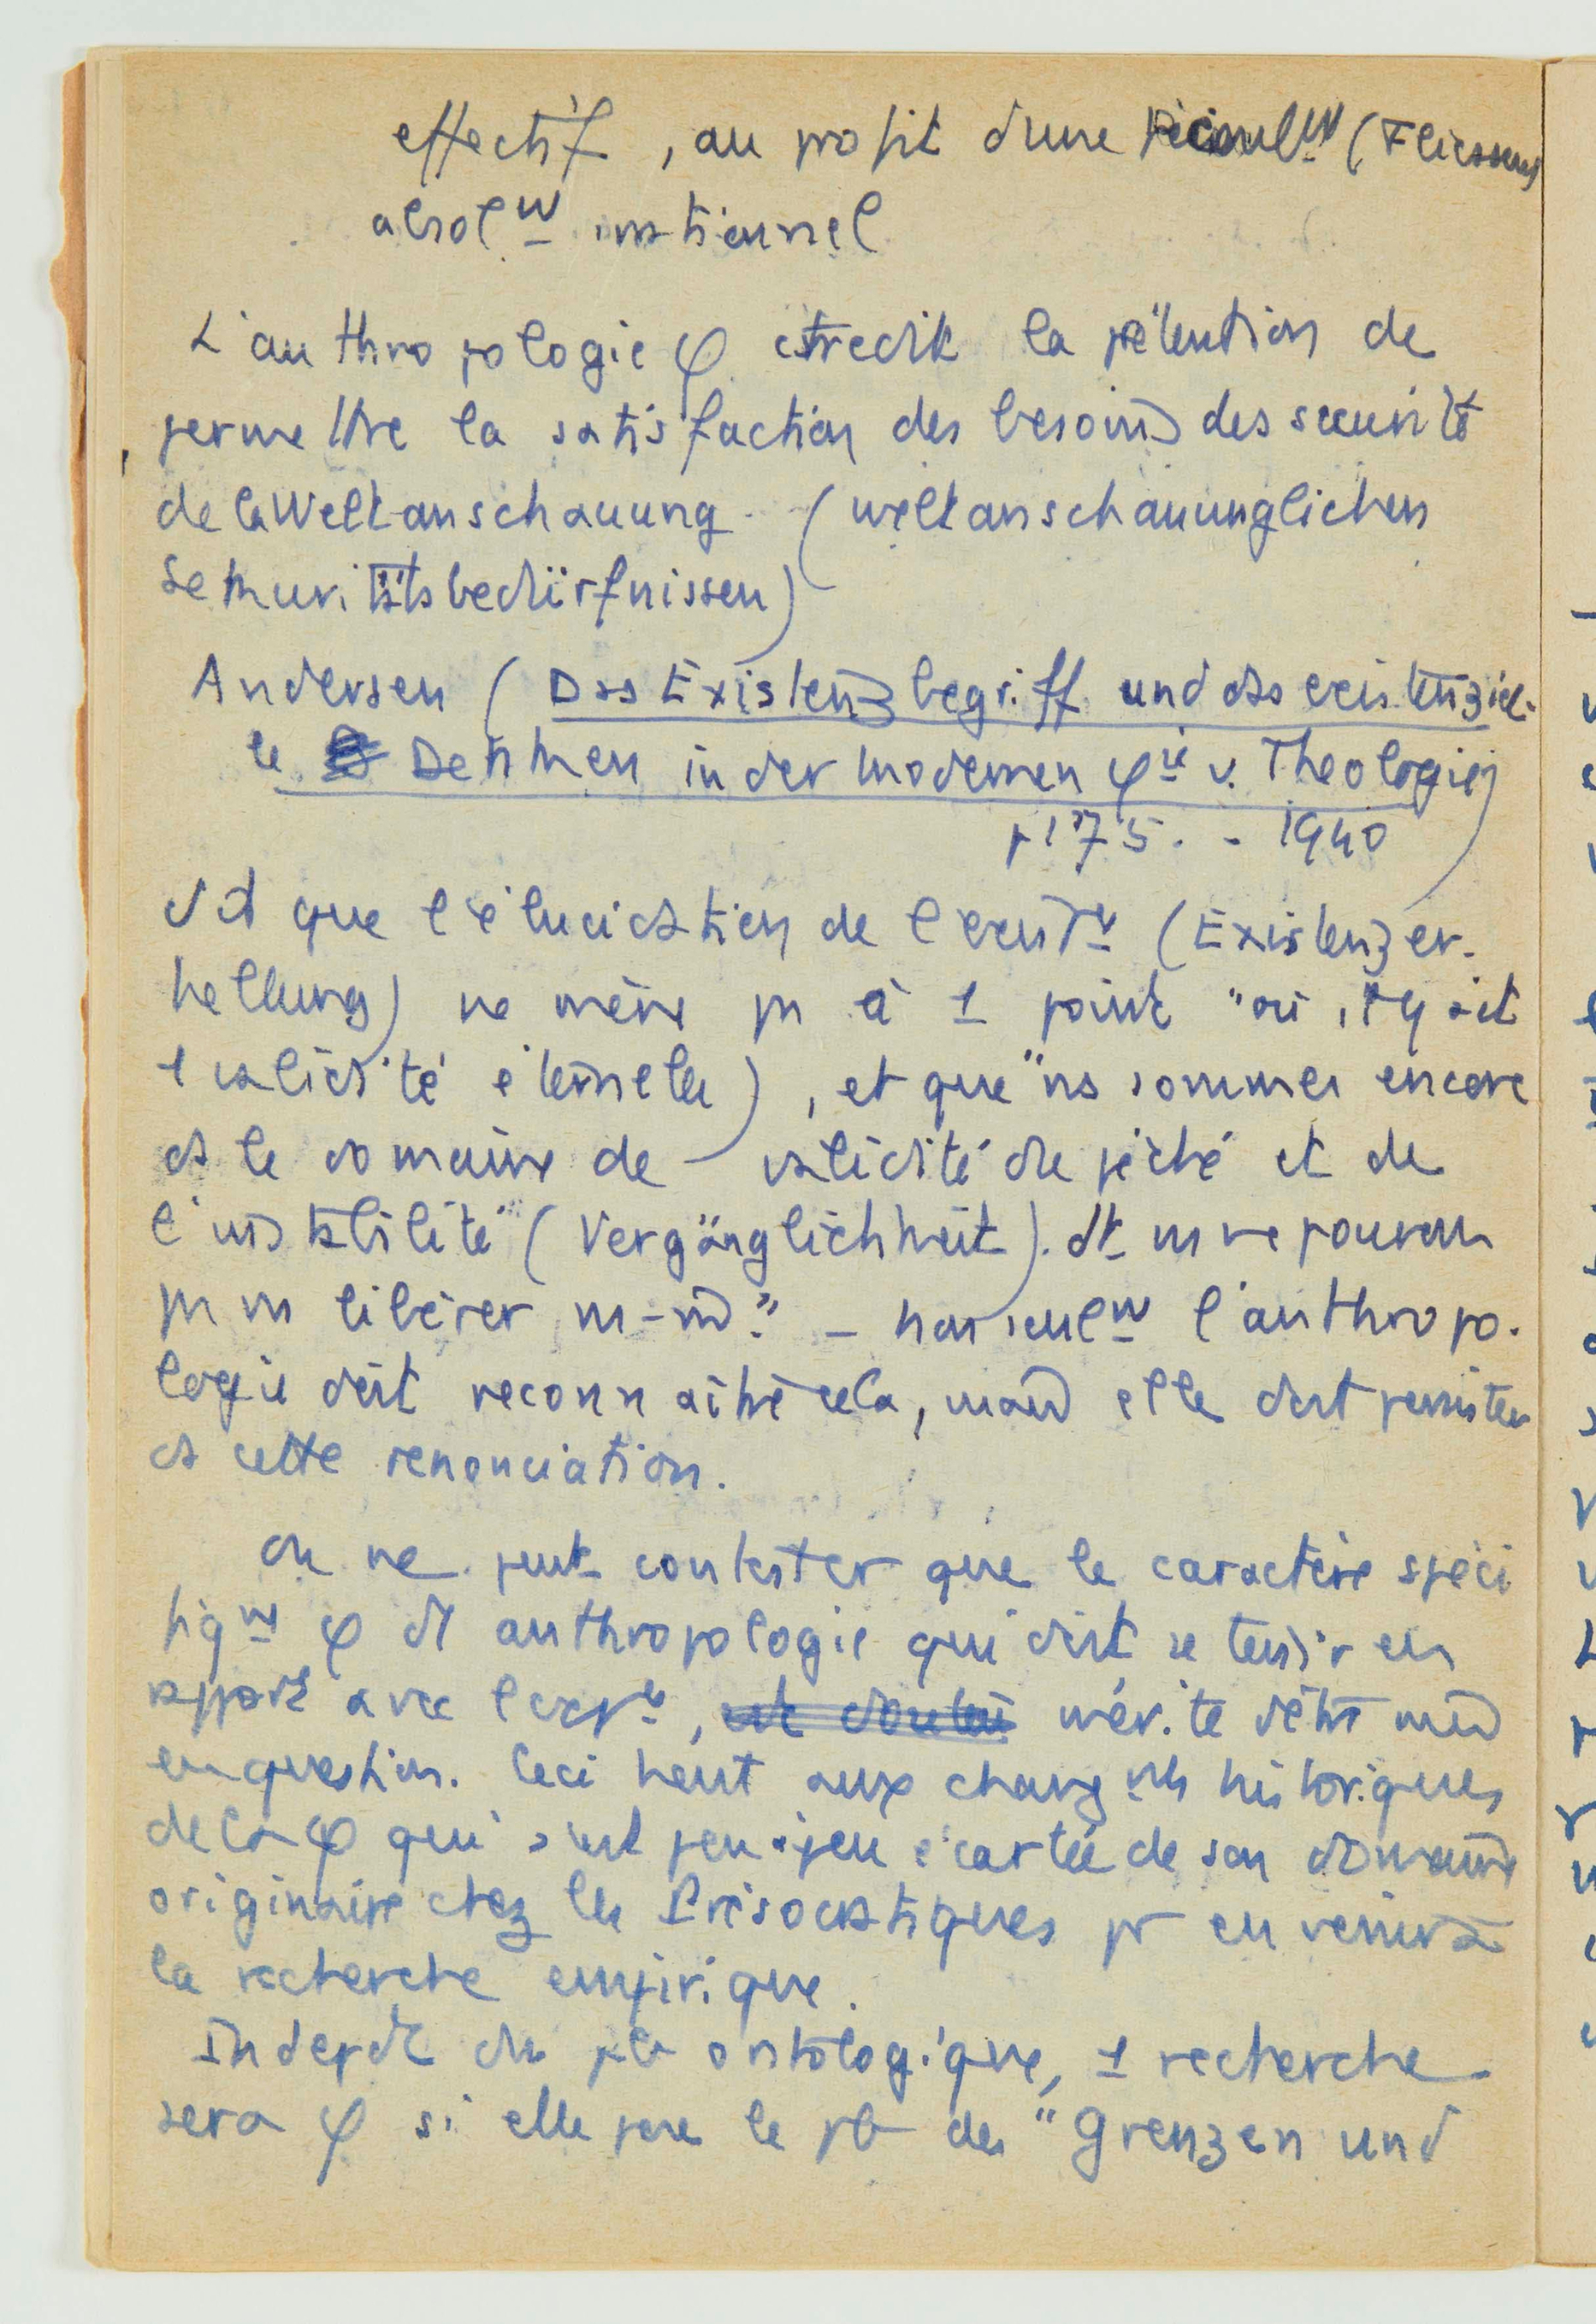 effectif, au profit d'une (Fliessens)
absolᵗ irrationnel
L'anthropologie φ contredit la prétention de
permettre la satisfaction des besoins des sécurité
de la Weltanschauung (weltanschaunglichen
Sekuritätsbedürfnissen)
Andersen (Das Existenzbegriff und das existenziel-
le Denken in der modernen φie u. Theologie)
p 175. - 1940
dit que l'élucidation de l'existce (Existenzer-
hellung) ne mène pas à 1 point "où il y ait
1 validité éternelle), et que "ns sommes encore
ds le domaine de validité du péché et de
l'instabilité (Vergänglichkeit). dt ns ne pouvons
pas ns libérer ns-m̂." - non seulmt l'anthropo-
logie doit reconnaître cela, mais elle doit persister
ds cette renonciation.
On ne peut contester que le caractère spéci
fiqmt φ d'1 anthropologie qui doit se tenir en
rapport avec l'expce, mérite d'être mis
en question. Ceci tient aux changmts historiques
de la φ qui s'est peu à peu écartée de son domaine
originaire chez les Présocratiques pr en venir à
la recherche empirique.
Indepdt du pb ontologique, 1 recherche
sera φ si elle pose le pb des "Grenzen und